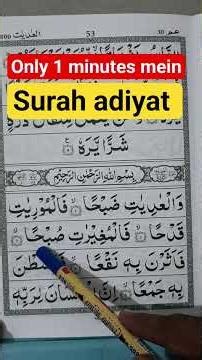 العديت ١٠٠
53
عم ٣٠
Only 1 minutes mein
Surah adiyat
شَرًّا يَّرَهٗ
بِسْمِ اللّٰهِ الرَّحْمٰنِ الرَّحِيْمِ
وَالْعٰدِيٰتِ ضَبْحًا فَالْمُوْرِيٰتِ
قَدْحًا فَالْمُغِيْرٰتِ صُبْحًا
فَاَثَرْنَ بِهٖ نَقْعًا فَوَسَطْنَ
بِهٖ جَمْعًا اِنَّ الْاِنْسَانَ لِرَبِّهٖ